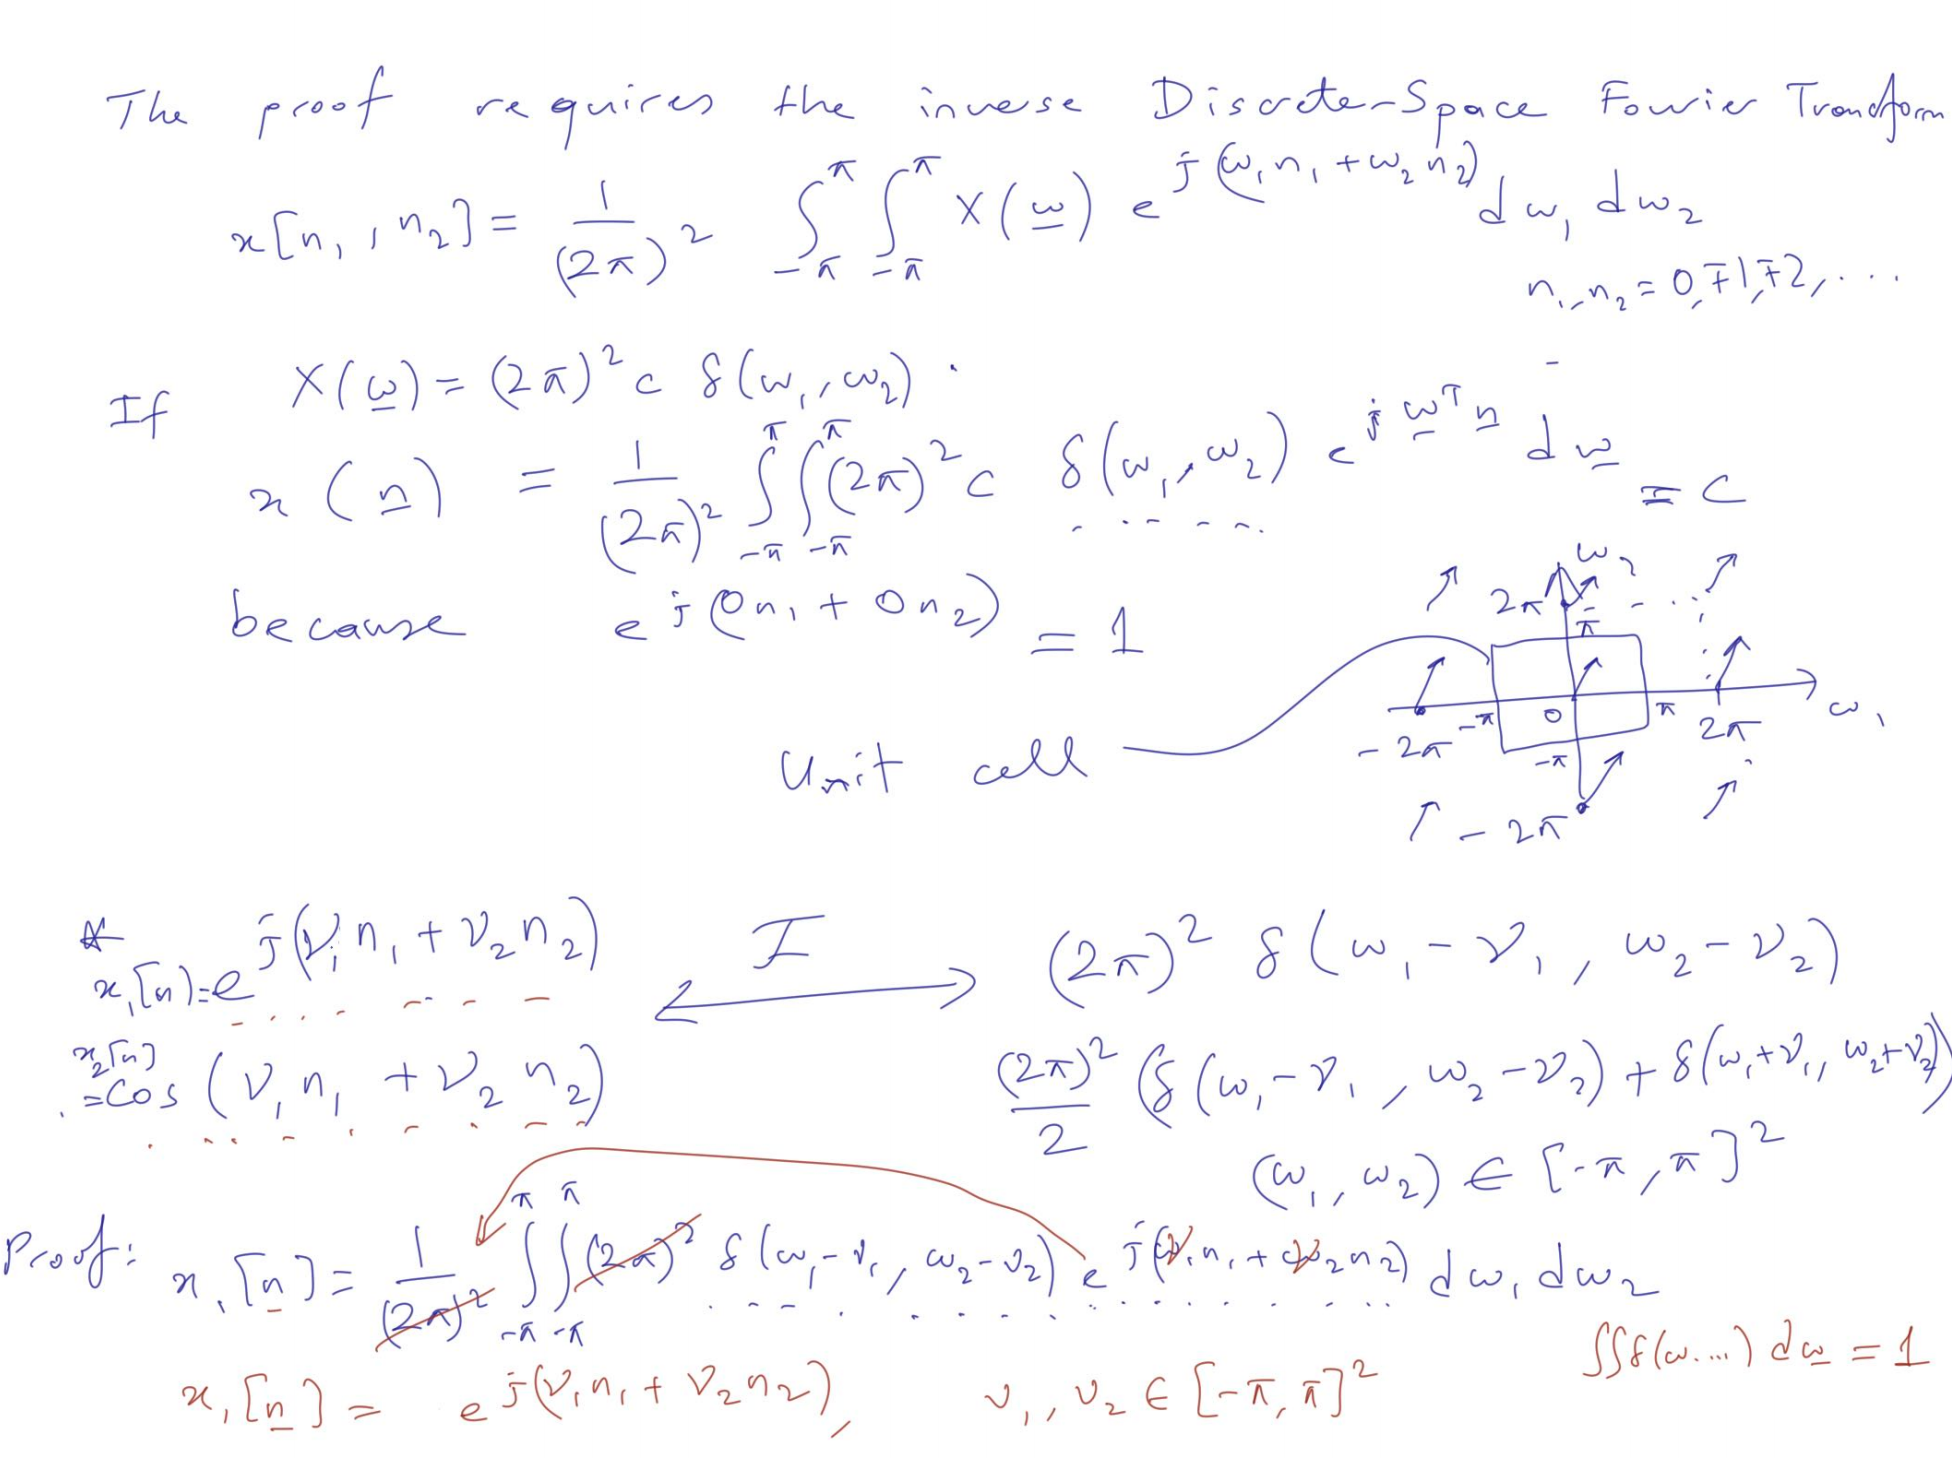 The proof requires the inverse Discrete-Space Fourier Transform
x[n₁, n₂] = 1/(2π)² ∫_{-π}^{π} ∫_{-π}^{π} X(ω) e^{j(ω₁n₁ + ω₂n₂)} dω₁ dω₂
n₁, n₂ = 0, ∓1, ∓2, ...
If X(ω) = (2π)² c δ(ω₁, ω₂).
x(n) = 1/(2π)² ∫_{-π}^{π} ∫_{-π}^{π} (2π)² c δ(ω₁, ω₂) e^{jω^T n} dω = c
because e^{j(0n₁ + 0n₂)} = 1
ω₂
2π
π
-2π -π 0 π 2π ω₁
-π
-2π
Unit cell
* x₁[n] = e^{j(ν₁n₁ + ν₂n₂)} ⟷ℱ (2π)² δ(ω₁ - ν₁, ω₂ - ν₂)
x₂[n] = Cos(ν₁n₁ + ν₂n₂) (2π)²/2 (δ(ω₁ - ν₁, ω₂ - ν₂) + δ(ω₁ + ν₁, ω₂ + ν₂))
(ω₁, ω₂) ∈ [-π, π]²
Proof: x₁[n] = 1/(2π)² ∫_{-π}^{π} ∫_{-π}^{π} (2π)² δ(ω₁ - ν₁, ω₂ - ν₂) e^{j(ν₁n₁ + ν₂n₂)} dω₁ dω₂
∫∫δ(ω....) dω = 1
x₁[n] = e^{j(ν₁n₁ + ν₂n₂)}, ν₁, ν₂ ∈ [-π, π]²